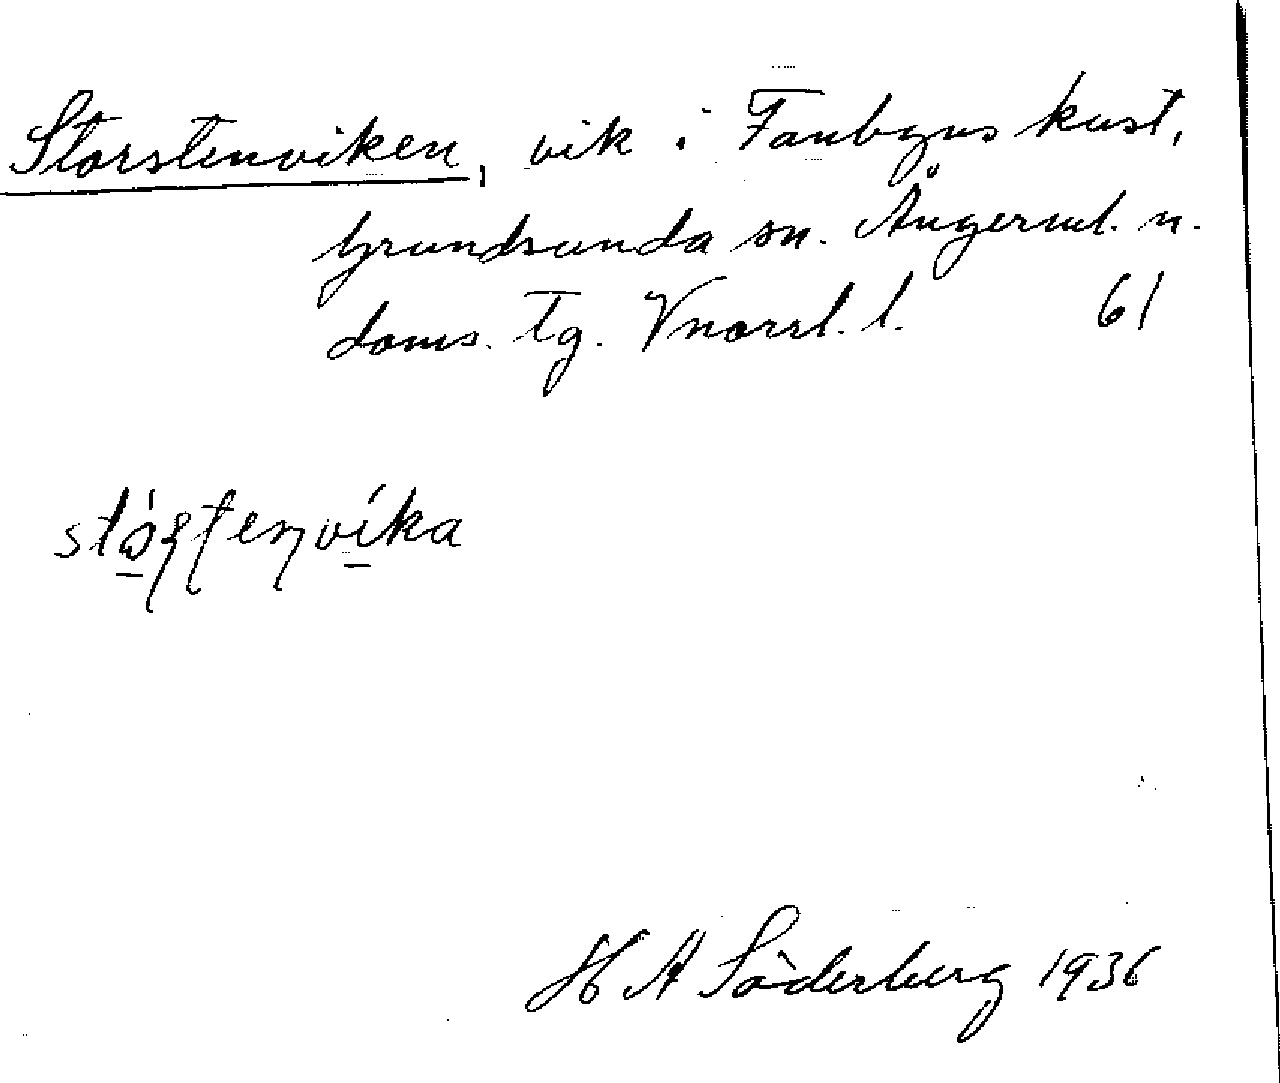 Storstenviken, vik i Fanbyns kust,
Grundsunda sn. Ångerml. n.
doms. tg. Vnorrl. l. 61
H A Söderberg 1936